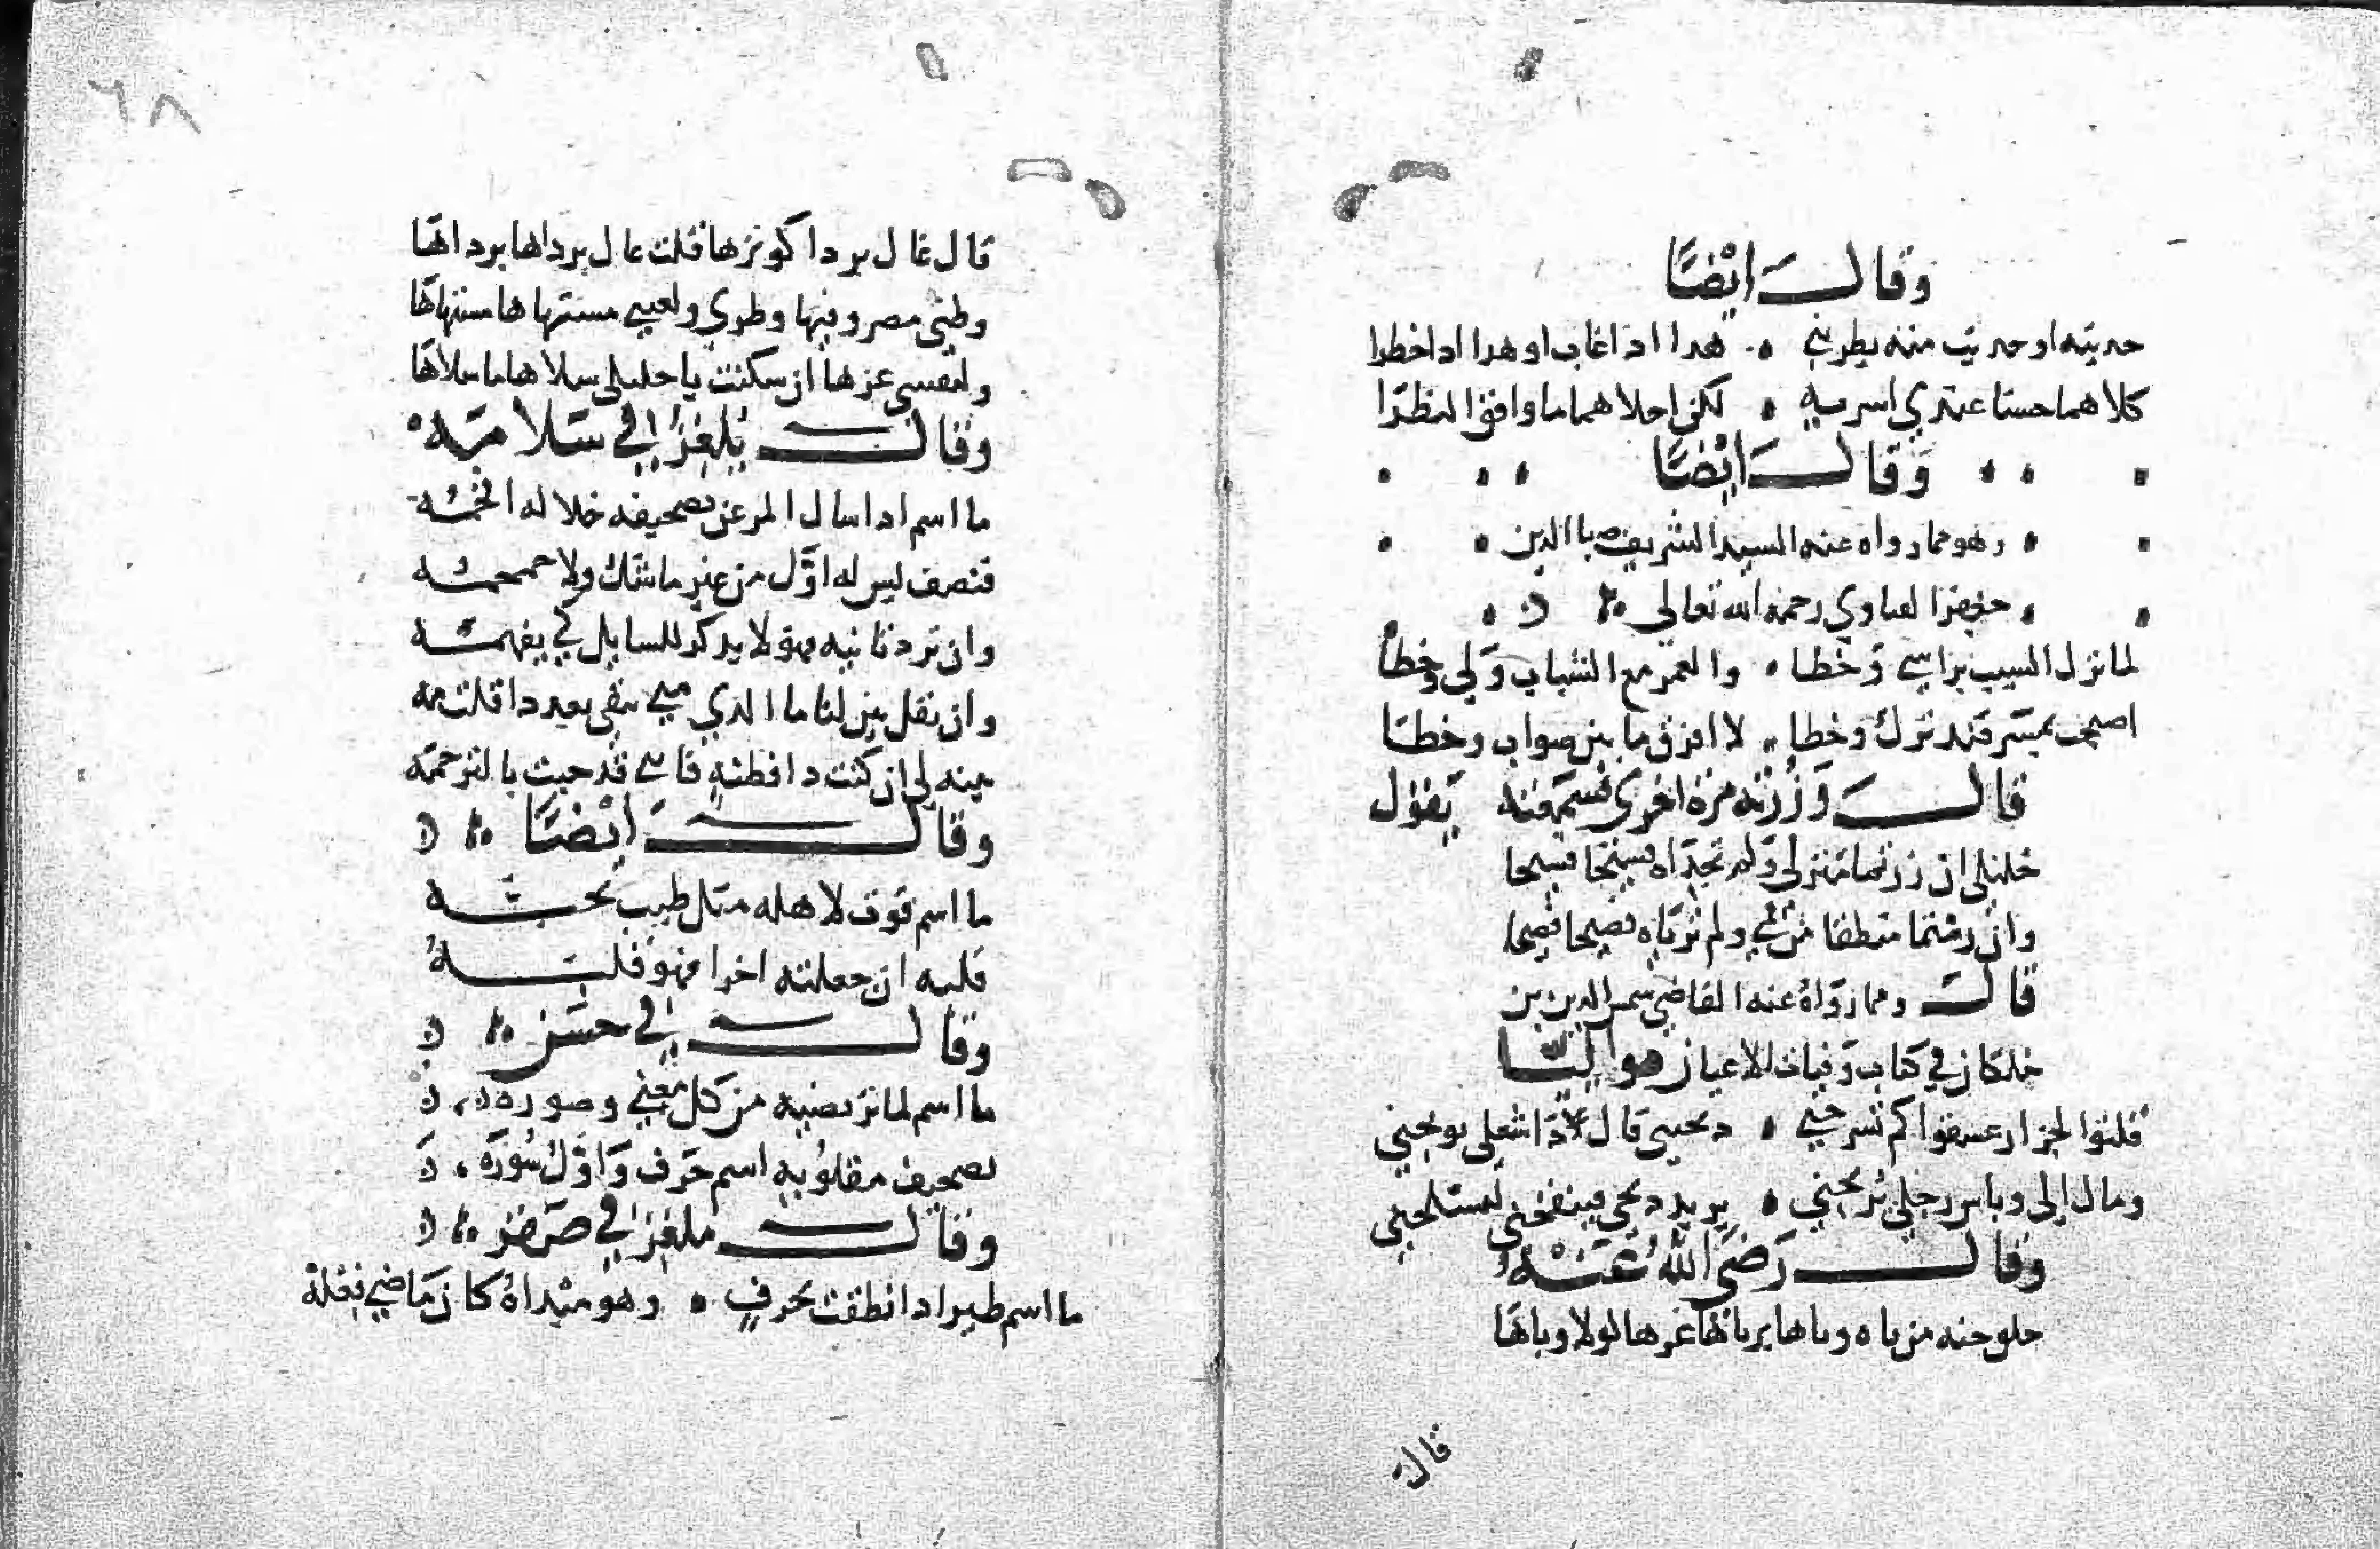 وقال ايضًا
حديثه او حديث منه يطربني هدا ادا غاب او هدا ادا حطرا
كلاهما حسنا عندي اسر به لكن احلاهما ما وافق النظرا
وقال ايضًا
وهو مما رواه عنه السيد الشريف الدين
رحمه الله تعالى
لما نزل السيب براسي وخطا والعمر مع الشباب ولي وخطا
اصبحت بمسر قند ترك وخطا لا افرق ما بين صواب وخطا
قال وزرته مرة اخرى فسمعته يقول
خليلي ان زرتما منزلي ولم تجداه فسيحا فسيحا
وان رمتما منطقا من فمي ولم ترياه فصيحا فصيحا
قال ومما رواه عنه القاضي شمس الدين بن
خلكان في كتاب وفيات الاعيان مواليا
قلتوا لجزار عشقتوا كم تشرحني دبحتني قال لا دا شغلي توبخني
ومال الي وباس رجلي يربخني يريد دبحي فينفخني ليسلخني
وقال رضي الله عنه
حلو جنه من تاه وباها برباها غرها لولا وباها
قال
قال غال بردا كوثرها قلت غال برداها برداها
وطني مصر وفيها وطري ولعيني مشتهاها مشتهاها
ولنفسي غيرها ان سكنت يا خليلي سلاها ما سلاها
وقال يلغز في سلامه
ما اسم ادا سال المر عن تصحيفه خلا له افحمه
فنصف ليس له اول من غير ما شك ولا
وان ترد ثانيه فهو لا يدكر للسايل كي يفهمه
وان تقل بين لنا ما الدي منه بقي بعد دا قلت مه
بينه لي ان كنت دا فطنة فاني قد جيت بالترجمه
وقال ايضًا
ما اسم قوت لاهله متل طيب تحبه
قلبه ان جعلته اخرا فهو قلبه
وقال في حسن
ما اسم لما ترتضيه من كل معني وصوره
تصحيف مقلوبه اسم حرف واول سوره
وقال ملغز في صقر
ما اسم طير ادا نطقت بحرف وهو مبداه كان ماضي فعله
٦٨